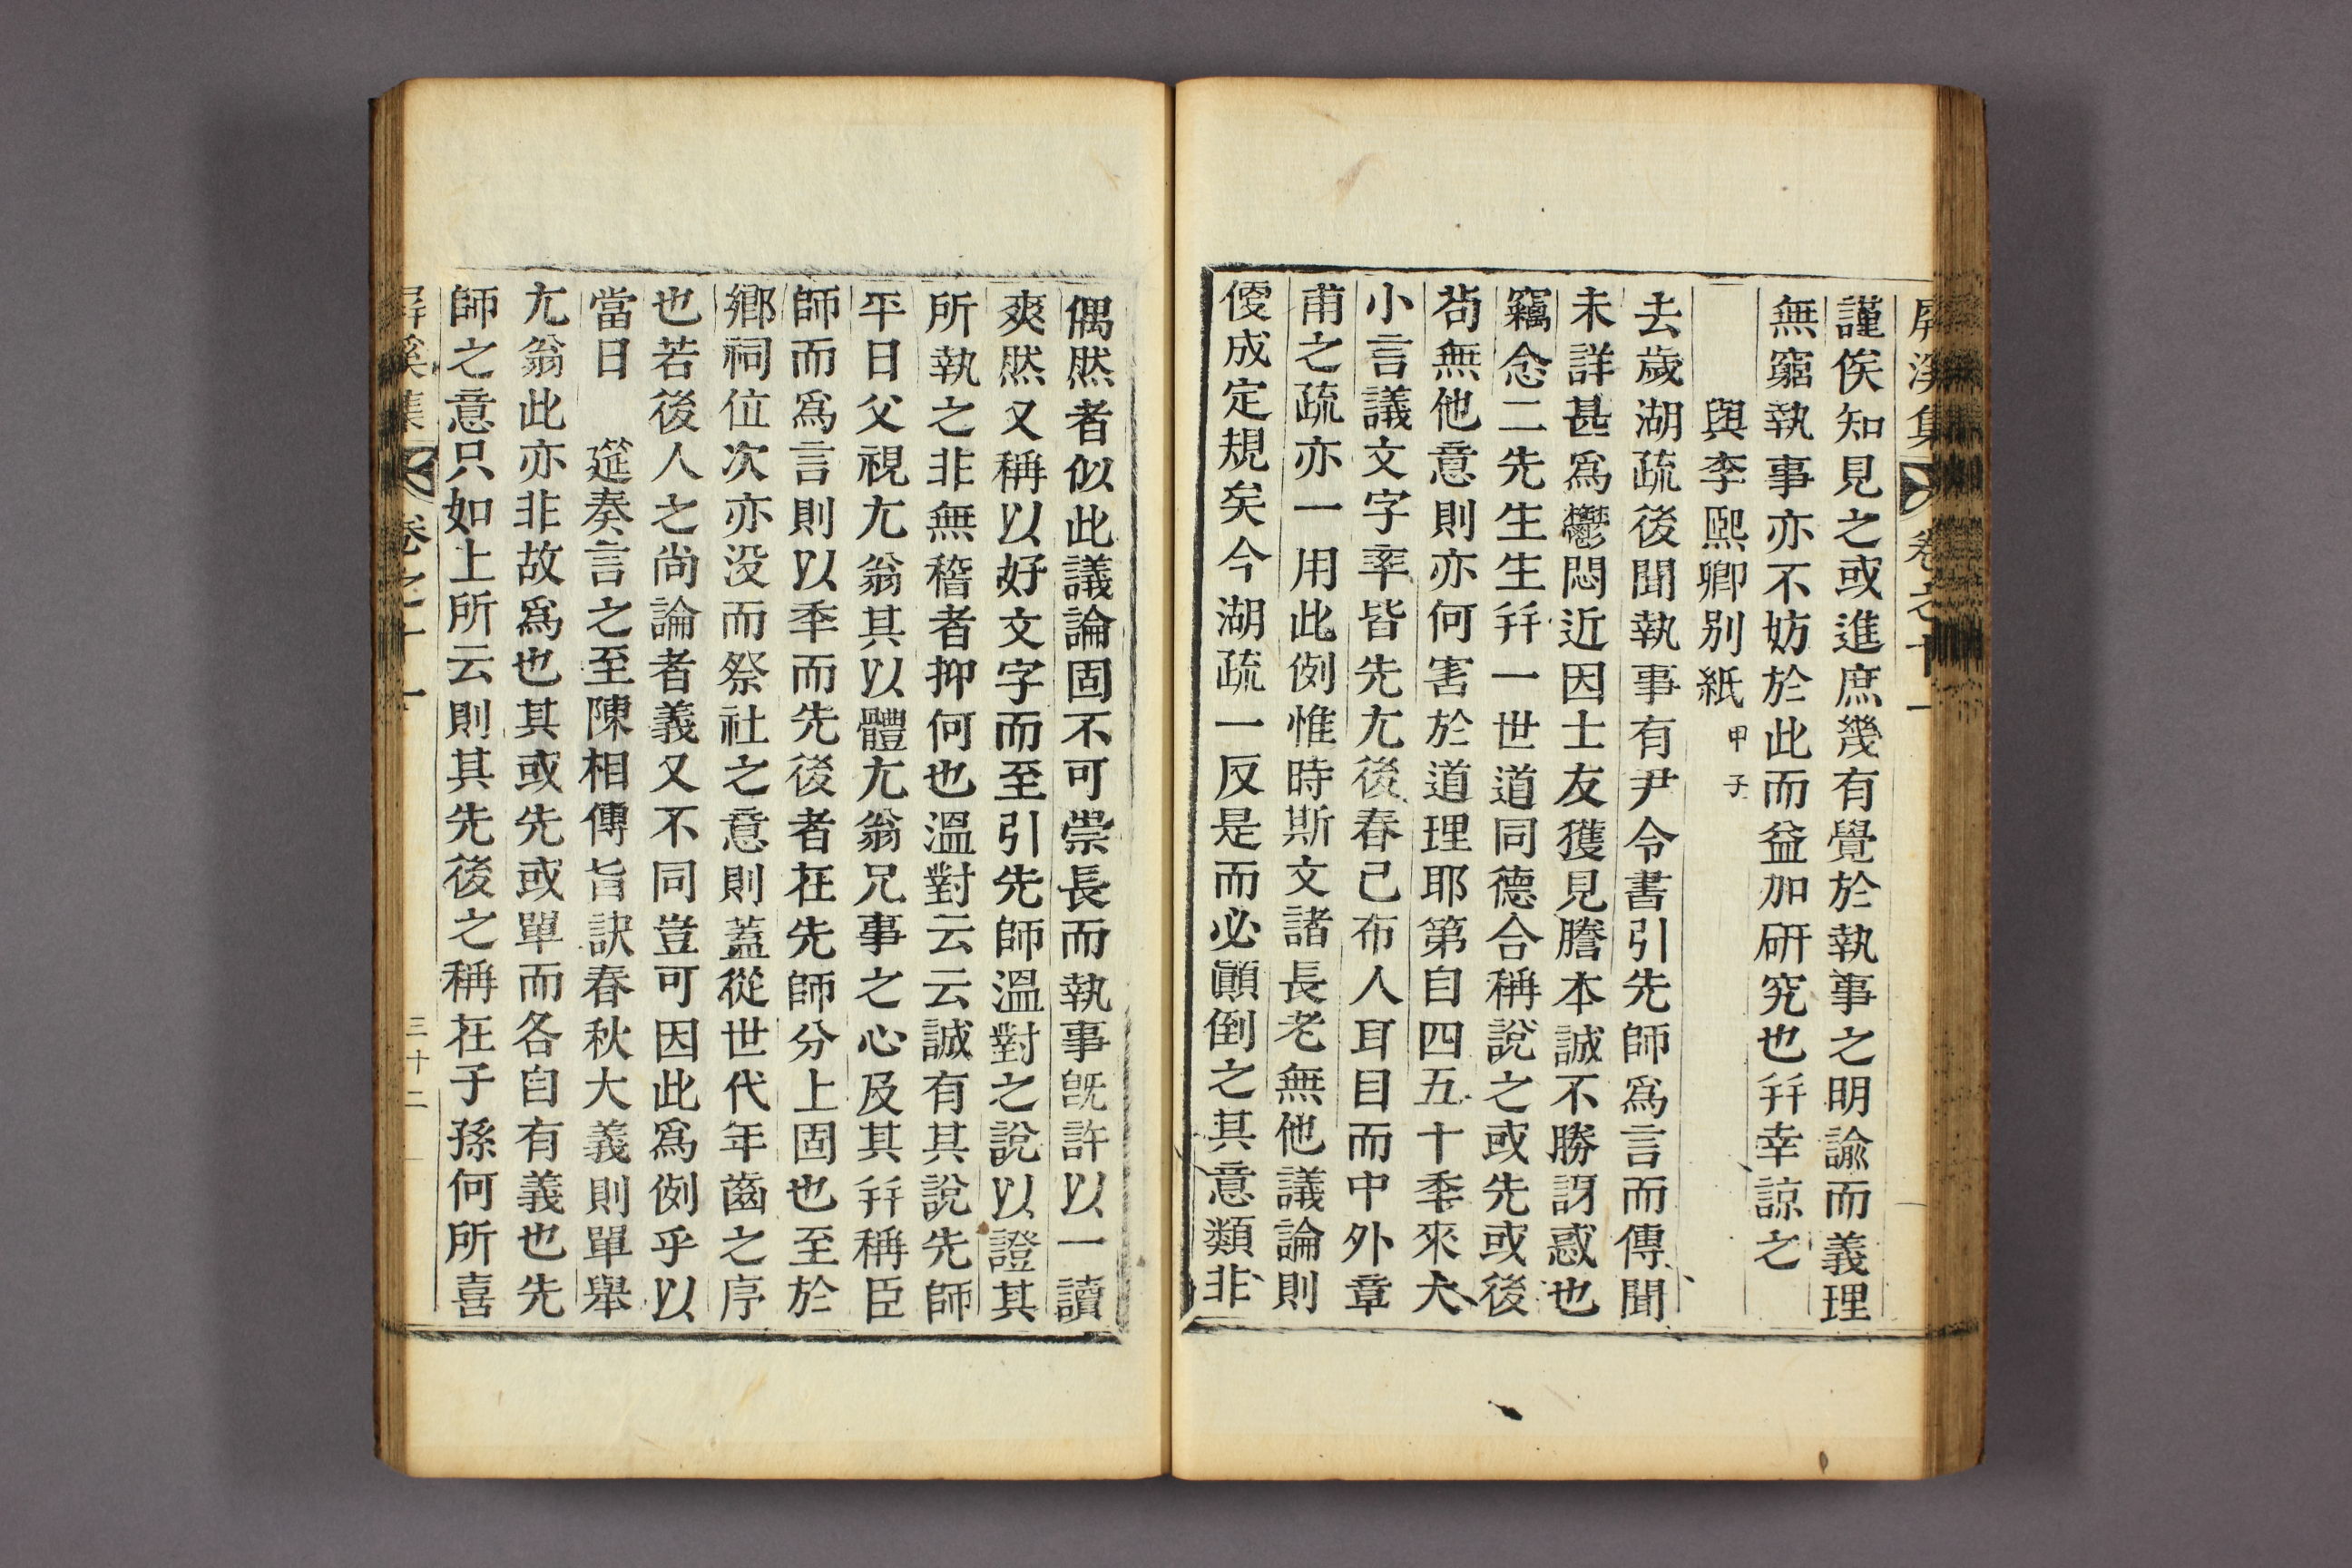 屏溪集 卷之十一
謹俟知見之或進庶幾有覺於執事之明諭而義理
無窮執事亦不妨於此而益加硏究也幷幸諒之
與李熙卿別紙 甲子
去歲湖疏後聞執事有尹令書引先師爲言而傳聞
未詳甚爲鬱悶近因士友獲見謄本誠不勝訝惑也
竊念二先生生幷一世道同德合稱說之或先或後
茍無他意則亦何害於道理耶第自四五十秊來大
小言議文字率皆先尤後春已布人耳目而中外章
甫之疏亦一用此例惟時斯文諸長老無他議論則
便成定規矣今湖疏一反是而必顚倒之其意類非
偶然者似此議論固不可崇長而執事旣許以一讀
爽然又稱以好文字而至引先師溫對之說以證其
所執之非無稽者抑何也溫對云云誠有其說先師
平日父視尤翁其以體尤翁兄事之心及其幷稱臣
師而爲言則以秊而先後者在先師分上固也至於
鄕祠位次亦没而祭社之意則蓋從世代年齒之序
也若後人之尙論者義又不同豈可因此爲例乎以
當日 筵奏言之至陳相傳旨訣春秋大義則單舉
尤翁此亦非故爲也其或先或單而各自有義也先
師之意只如上所云則其先後之稱在子孫何所喜
屏溪集 卷之十一 三十二